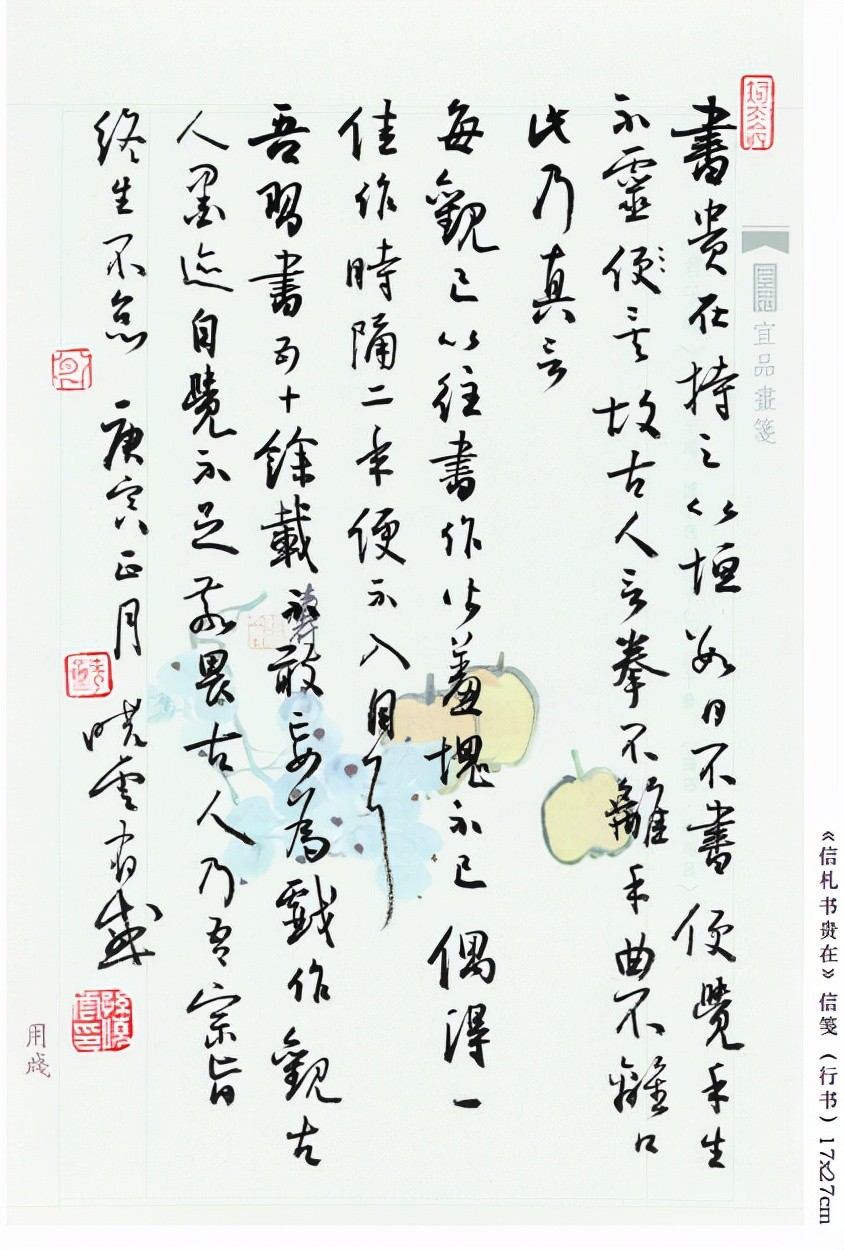 書貴在持之以恒數日不書便覺手生
不靈便矣故古人言拳不離手曲不離口
此乃真言
每觀已以往書作皆羞愧不已偶得一
佳作時隔二年便不入目了
吾習書五十餘載不敢妄為戲作觀古
人墨迹自覺不足敬畏古人乃吾宗旨
終生不怠 庚寅正月 曉雲有感
宜品畫箋
用箋
《信札书贵在》信笺（行书）17x27cm